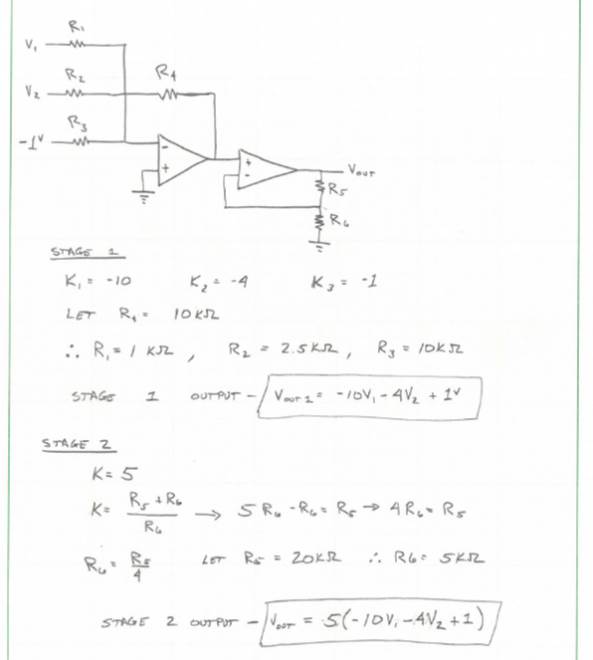 R1
V1
R2
R4
V2
R3
-1V
-
+
+
-
VOUT
R5
R6
STAGE 1
K1 = -10 K2 = -4 K3 = -1
LET R4 = 10 KΩ
∴ R1 = 1 KΩ , R2 = 2.5 KΩ , R3 = 10KΩ
STAGE 1 OUTPUT - VOUT 1 = -10V1 - 4V2 + 1V
STAGE 2
K = 5
K = (R5 + R6) / R6 → 5 R6 - R6 = R5 → 4 R6 = R5
R6 = R5 / 4 LET R5 = 20KΩ ∴ R6 = 5KΩ
STAGE 2 OUTPUT - VOUT = 5(-10V1 - 4V2 + 1)